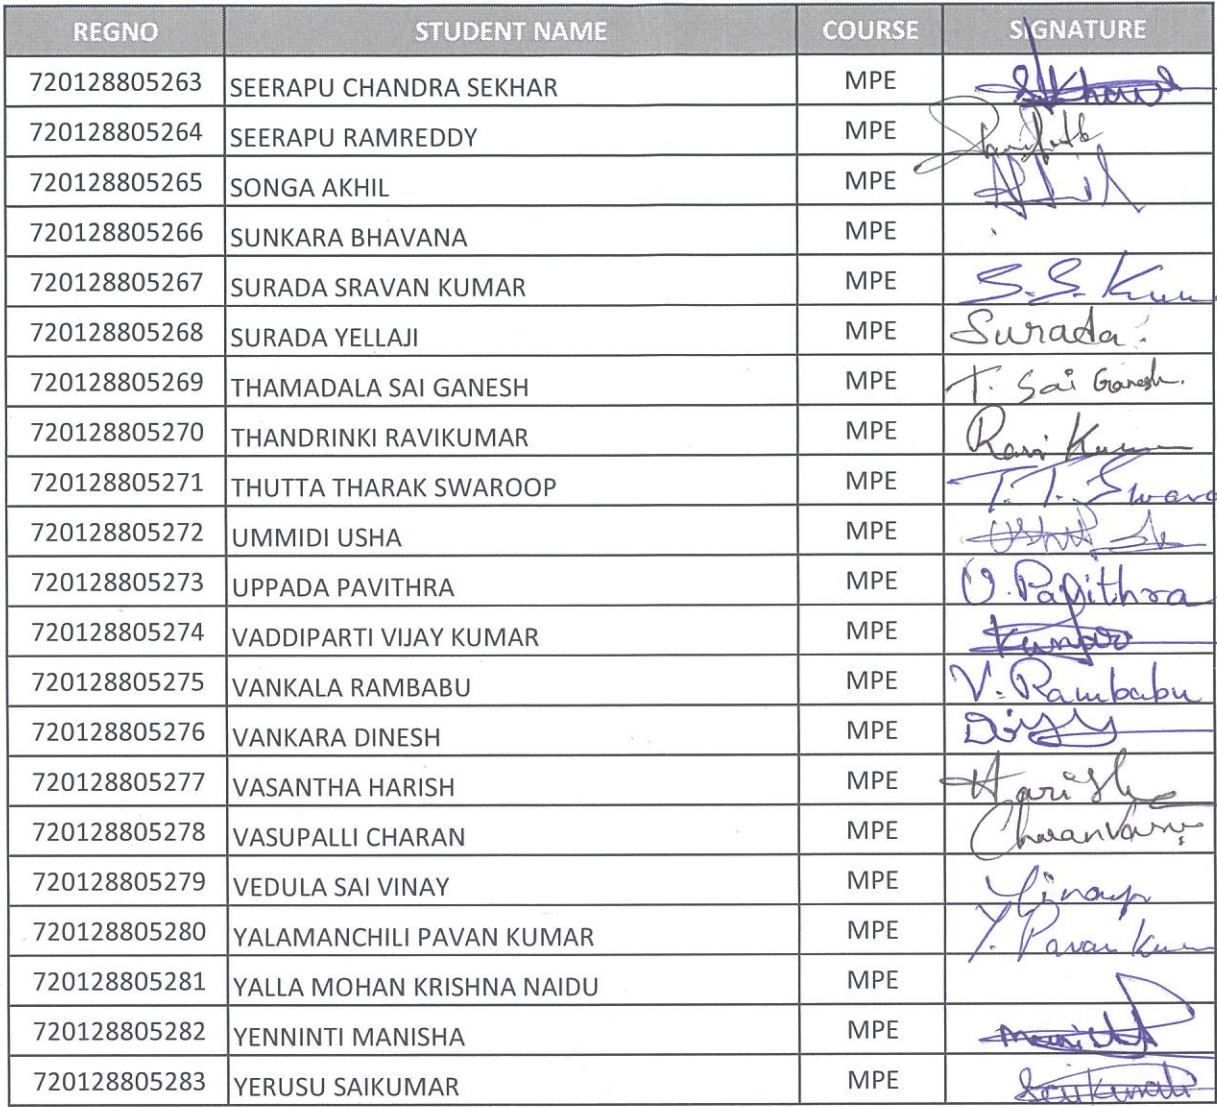 REGNO STUDENT NAME COURSE SIGNATURE
720128805263 SEERAPU CHANDRA SEKHAR MPE
720128805264 SEERAPU RAMREDDY MPE
720128805265 SONGA AKHIL MPE Akhil
720128805266 SUNKARA BHAVANA MPE
720128805267 SURADA SRAVAN KUMAR MPE S.S. Kum
720128805268 SURADA YELLAJI MPE Surada.
720128805269 THAMADALA SAI GANESH MPE T. Sai Ganesh.
720128805270 THANDRINKI RAVIKUMAR MPE Ravi Kum
720128805271 THUTTA THARAK SWAROOP MPE T.T. Swaro
720128805272 UMMIDI USHA MPE
720128805273 UPPADA PAVITHRA MPE U. Pavithra
720128805274 VADDIPARTI VIJAY KUMAR MPE Kumar
720128805275 VANKALA RAMBABU MPE V. Rambabu
720128805276 VANKARA DINESH MPE
720128805277 VASANTHA HARISH MPE Harish
720128805278 VASUPALLI CHARAN MPE
720128805279 VEDULA SAI VINAY MPE Vinay
720128805280 YALAMANCHILI PAVAN KUMAR MPE Y. Pavan Kum
720128805281 YALLA MOHAN KRISHNA NAIDU MPE
720128805282 YENNINTI MANISHA MPE
720128805283 YERUSU SAIKUMAR MPE Saikumar